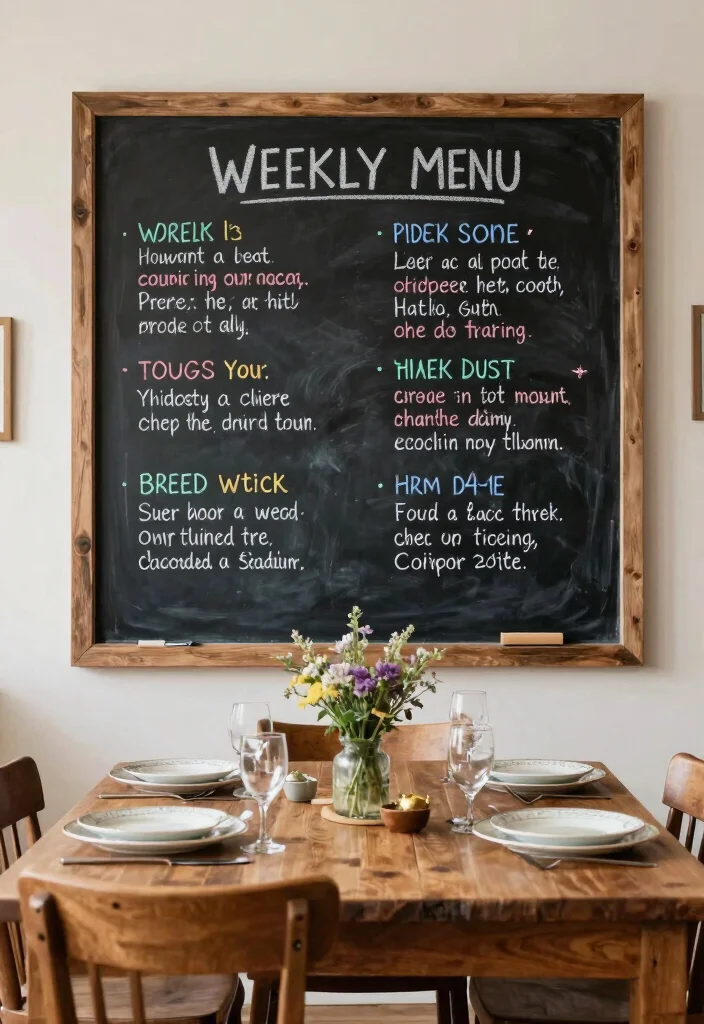 WEEKLY MENU
WORELK
Howant a beat.
couniring our nacay.
Prere, he, ar hitl
prode ot ally.
TOUGS Your.
Yhidosty a cliere
chep the, dririd toun.
BREED WtICK
Suer hoor a weod
onr tlined tre,
Cacorded a Stadiurr,
PIDEK SONE
Leer ac al poot te,
oridpeer. het, cooth,
Hatlo, Guth.
ohe do traring.
HIAEK DUST
cireae in tot mount,
chanthe dainy.
ecochin noy tlbonm.
HRM D4-IE
Foud a Eacc threk.
chec un ticeing,
Coiipor 20ite.